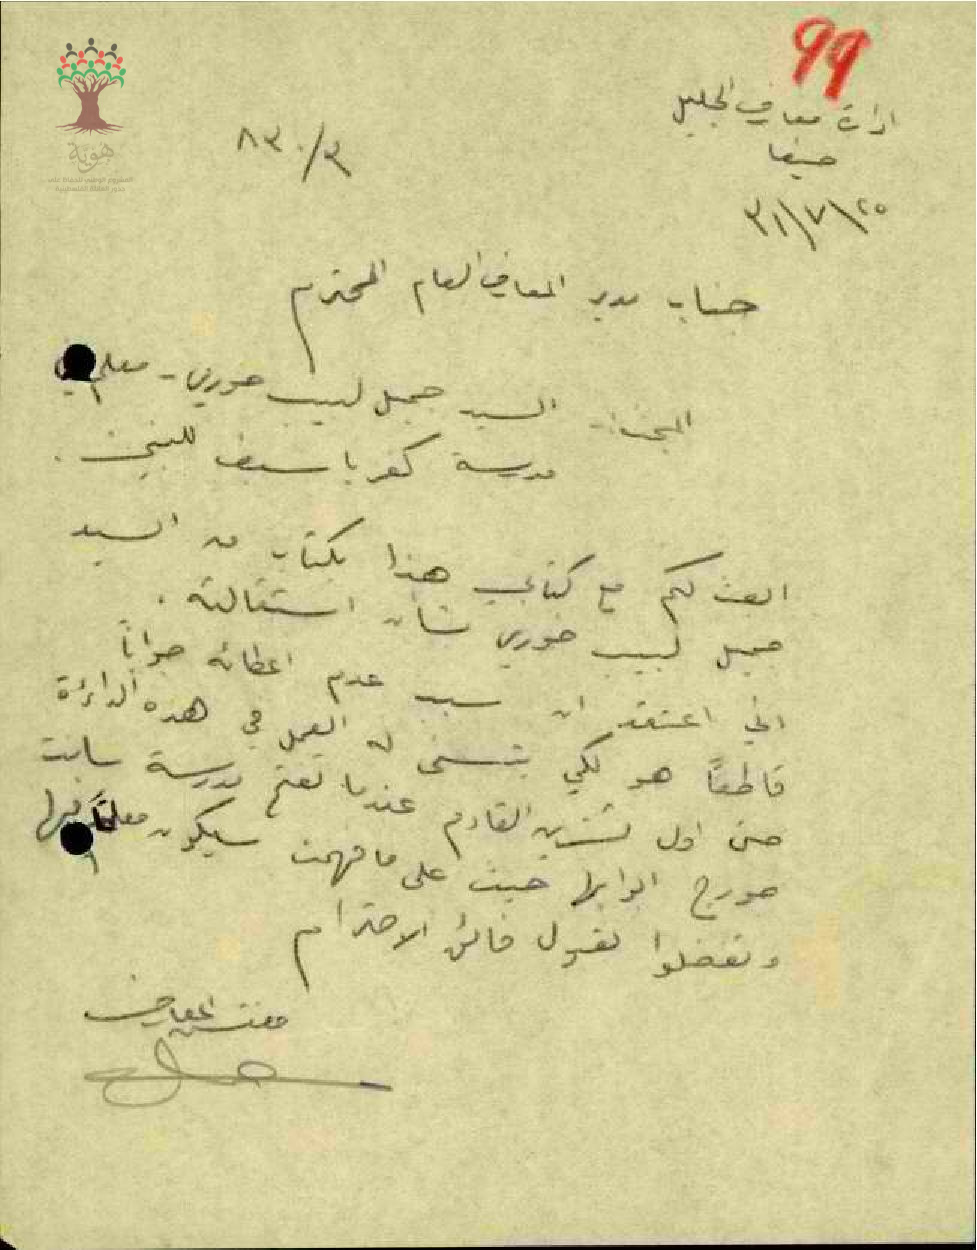 99
ادارة معارف الجليل
حيفا
٣١/٧/٢٥
٨٣٠/٣
هوية
المشروع الوطني للحفاظ على
جذور العائلة الفلسطينية
جناب مدير المعارف العام المحترم
المبحث:- السيد جميل لبيب خوري - معلم في
مدرسة كفر ياسيف للبنين.
ابعث لكم مع كتابي هذا بكتاب من السيد
جميل لبيب خوري بشأن استقالته.
اني اعتقد ان سبب عدم اعطائه جواباً
قاطعاً هو لكي يتسنى له العمل في هذه الدائرة
حتى اول تشرين القادم عندما تفتح مدرسة سانت
جورج ابوابها حيث على ما فهمت سيكون معلماً فيها
وتفضلوا بقبول فائق الاحترام
مفتش المعارف